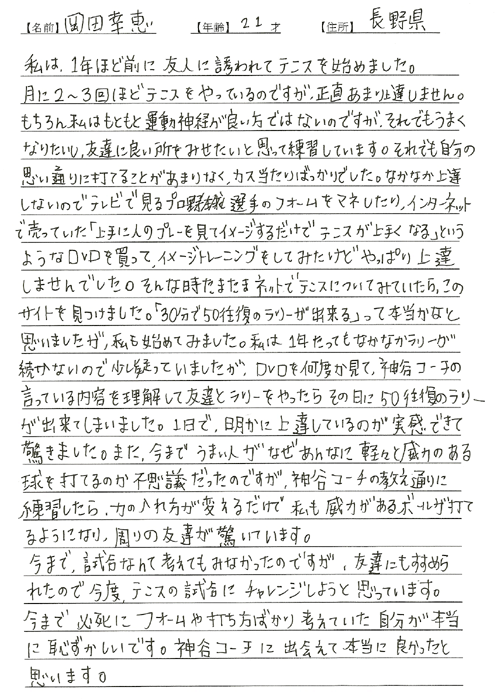 【名前】岡田幸恵 【年齢】21才 【住所】長野県
私は、1年ほど前に友人に誘われてテニスを始めました。
月に2〜3回ほどテニスをやっているのですが、正直あまり上達しません。
もちろん私はもともと運動神経が良い方ではないのですが、それでもうまく
なりたいし、友達に良い所をみせたいと思って練習しています。それでも自分の
思い通りに打てることがあまりなく、カス当たりばっかりでした。なかなか上達
しないのでテレビで見るプロ野球選手のフォームをマネしたり、インターネット
で売っていた「上手に人のプレーを見てイメージするだけでテニスが上手くなる」という
ようなDVDを買って、イメージトレーニングをしてみたけどやっぱり上達
しませんでした。そんな時たまたまネットでテニスについてみていたら、この
サイトを見つけました。「30分で50往復のラリーが出来る」って本当かなと
思いましたが、私も始めてみました。私は1年たってもなかなかラリーが
続かないので少し疑っていましたが、DVDを何度か見て、神谷コーチの
言っている内容を理解して友達とラリーをやったらその日に50往復のラリー
が出来てしまいました。1日で、明かに上達しているのが実感できて
驚きました。また、今までうまい人がなぜあんなに軽々と威力のある
球を打てるのか不思議だったのですが、神谷コーチの教え通りに
練習したら、力の入れ方が変えるだけで私も威力があるボールが打て
るようになり、周りの友達が驚いています。
今まで、試合なんて考えてもみなかったのですが、友達にもすすめら
れたので今度、テニスの試合にチャレンジしようと思っています。
今まで必死にフォームや打ち方ばかり考えていた自分が本当
に恥ずかしいです。神谷コーチに出会えて本当に良かったと
思います。